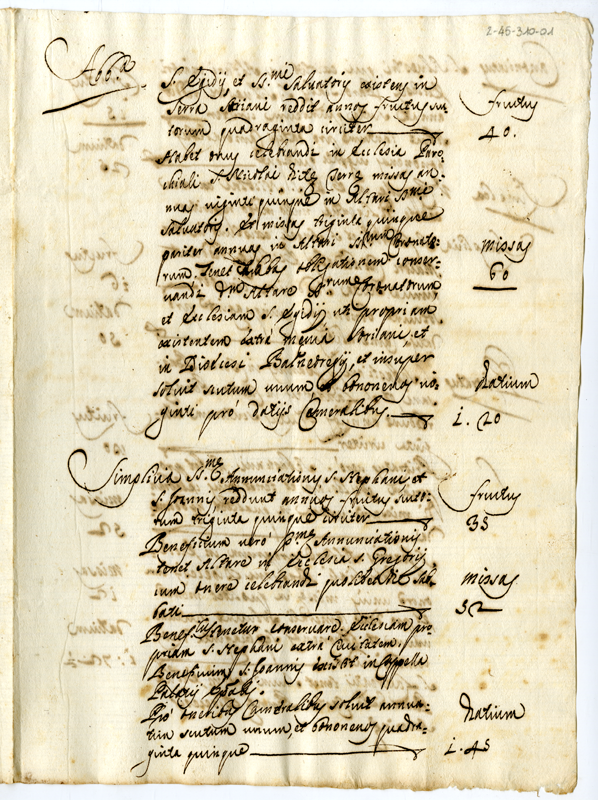 2-45-310-01
Abb.a
S. Egidij et SS.me Salvatoris existens in
Terra Atriani reddit annos fructus scu
torum quadraginta circiter
fructus
40.
Habet onus celebrandi in Ecclesia Paro
chiali S. Nicolai dictę Terrę missas an-
nuas viginti quinque in Altari
Salvatoris. Et missas triginta quinque
pariter annuas in Altari Coronato-
missas
60
rum. Tenet obligationem conser-
vandi Altare Coronatorum,
et Ecclesiam S. Egidij uti propriam
existentem extra menia et
in Diocesi Balneoregij, et insuper
solvit scutum unum et bononenos vi-
ginti pro datijs Cameralibus
Datium
1. 20
Simplicia SS.me Annunciationis S. Stephani et
S. Joannis reddunt annuos fructus scuto-
rum triginta quinque circiter
fructus
35
Beneficium vero Annunciationis
tenet Altare in Ecclesia S. Gregorij
cum onere celebrandi quolibet die Sab-
bati
missas
52
tenetur conservare Ecclesiam pro-
priam S. Stephani extra Civitatem.
Beneficium S. Joannis existit in Cappella
Palatij
Pro oneribus Cameralibus solvit annua-
tim scutum unum, et bononenos quadra-
ginta quinque
Datium
1. 45